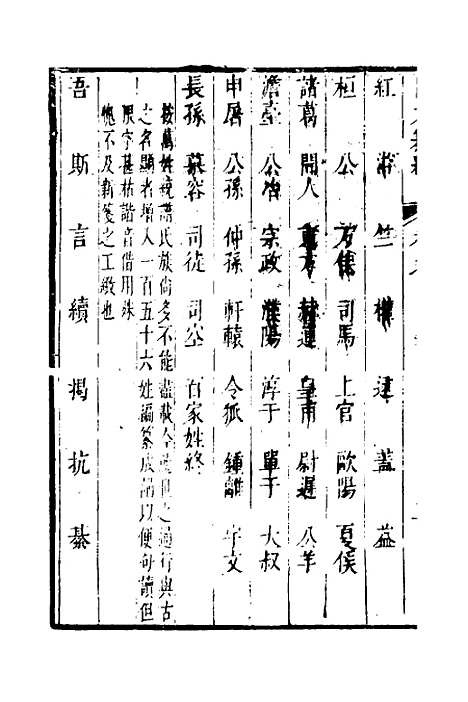 紅 游 竺 權 逯 蓋 益
桓 公 万俟 司馬 上官 歐陽 夏侯
諸葛 聞人 東方 赫連 皇甫 尉遲 公羊
澹臺 公冶 宗政 濮陽 淳于 單于 大叔
申屠 公孫 仲孫 軒轅 令狐 鍾離 宇文
長孫 慕容 司徒 司空 百家姓終
按萬姓統譜氏族尚多不能盡載今世之通行與古
之名顯者增人一百五十六姓編纂成韻以便句讀但
限字甚枯諧音借用殊
愧不及新箋之工緻也
吾 斯 言 續 揭 抗 綦